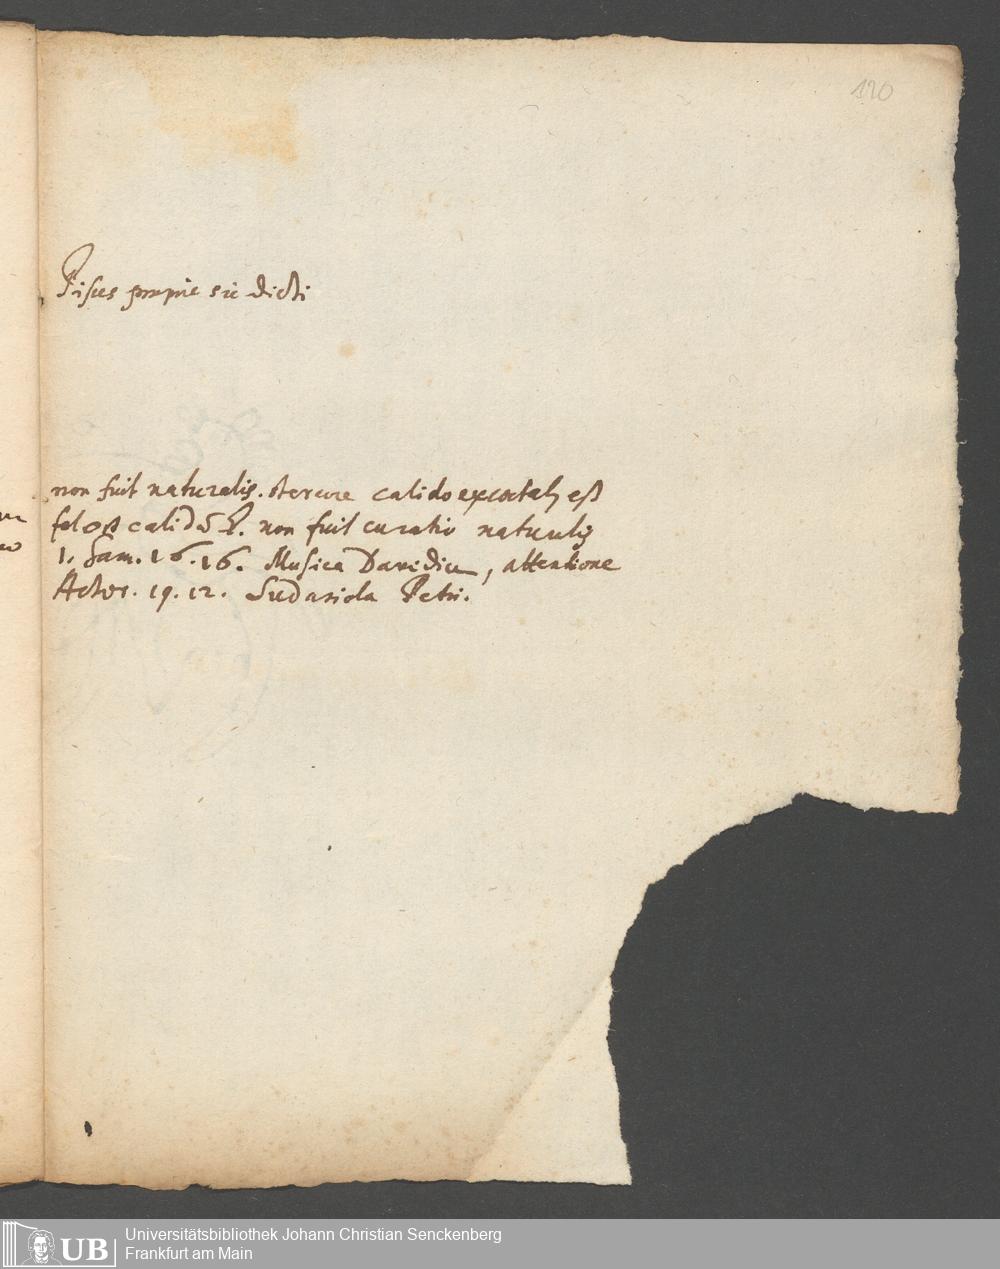 120
Pisces proprie sic dicti
non fuit naturalis. stercore calido excoecatus est
fel est calidū &. non fuit curatio naturalis
1. Sam. 16.16. Musica Davidica, attentione
Actor. 19.12. Sudariola Petri.
UB
Universitätsbibliothek Johann Christian Senckenberg
Frankfurt am Main